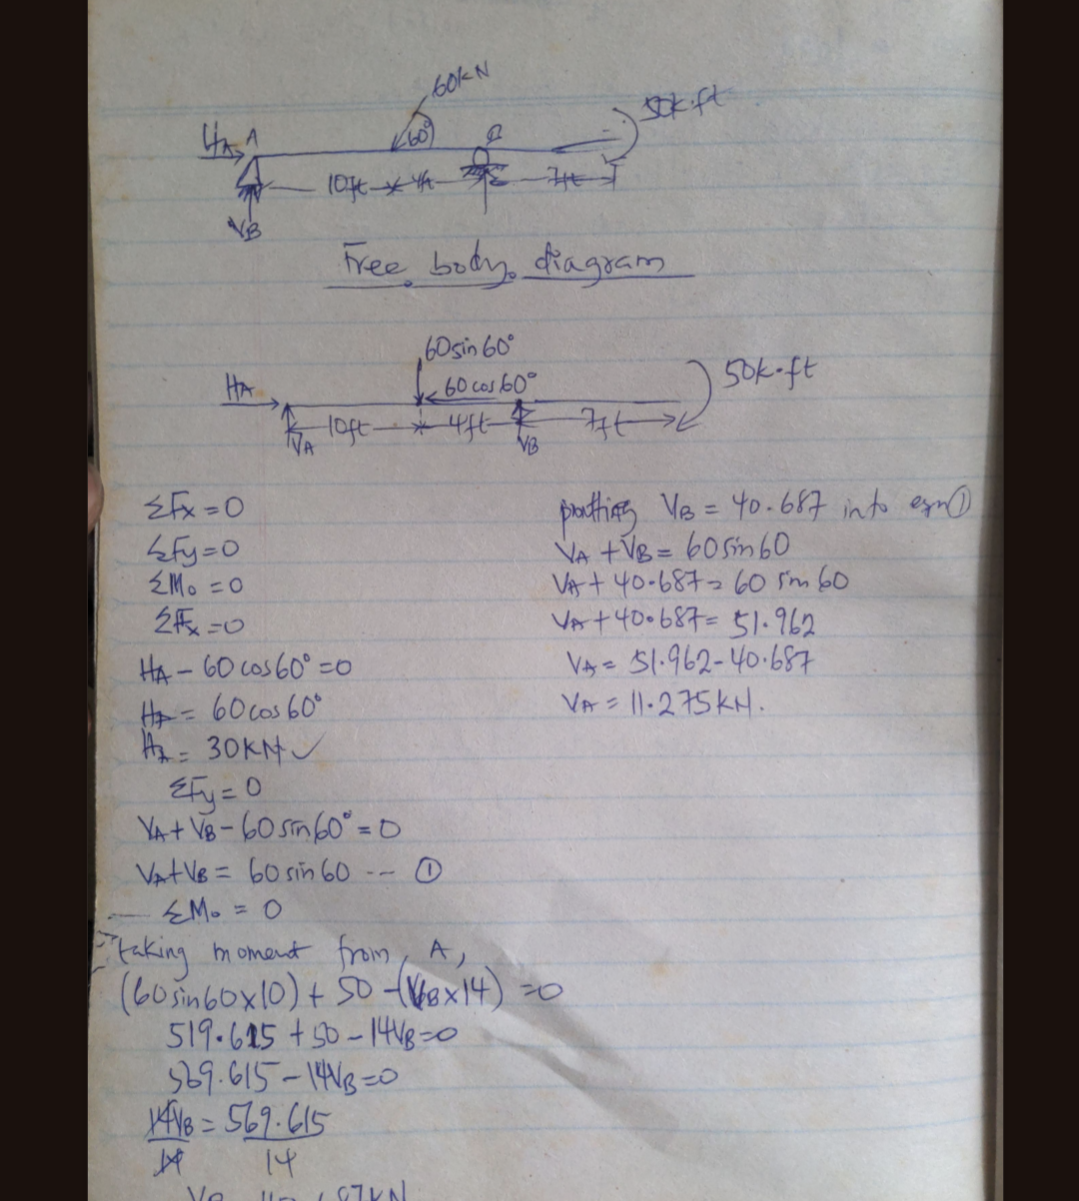 60kN
HA A
60°
B
50k·ft
10ft 4ft 7ft
VB
Free body diagram
60sin60°
HA
60cos60°
50k·ft
10ft 4ft 7ft
VA VB
ΣFx = 0
ΣFy = 0
ΣMo = 0
ΣFx = 0
HA - 60cos60° = 0
HA = 60cos60°
HA = 30KN ✓
ΣFy = 0
VA + VB - 60sin60° = 0
VA + VB = 60sin60 -- ①
ΣMo = 0
taking moment from A,
(60sin60x10) + 50 - (VBx14) = 0
519.615 + 50 - 14VB = 0
569.615 - 14VB = 0
14VB = 569.615
14 14
putting VB = 40.687 into eqn ①
VA + VB = 60sin60
VA + 40.687 = 60 sin 60
VA + 40.687 = 51.962
VA = 51.962 - 40.687
VA = 11.275KN.